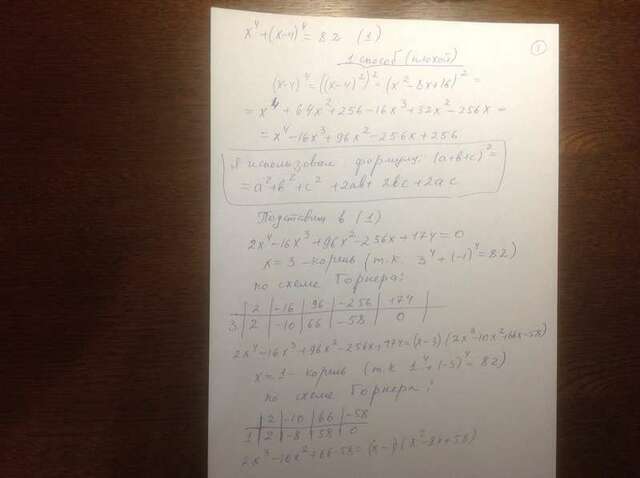 x⁴+(x-4)⁴=82 (1)
1
1 способ (плохой)
(x-4)⁴=((x-4)²)²=(x²-8x+16)²=
=x⁴+64x²+256-16x³+32x²-256x=
=x⁴-16x³+96x²-256x+256
Я использовал формулу: (a+b+c)²=
=a²+b²+c²+2ab+2bc+2ac
Подставим в (1)
2x⁴-16x³+96x²-256x+174=0
x=3-корень (т.к. 3⁴+(-1)⁴=82)
по схеме Горнера:
2 -16 96 -256 +174
3 2 -10 66 -58 0
2x⁴-16x³+96x²-256x+174=(x-3)(2x³-10x²+66x-58)
x=1-корень (т.к 1⁴+(-3)⁴=82)
по схеме Горнера:
2 -10 66 -58
1 2 -8 58 0
2x³-10x²+66-58=(x-1)(x²-8x+58)